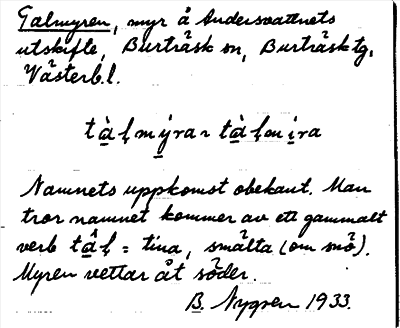 Talmyren, myr å Andersvattnets
utskifte, Burträsk sn, Burträsk tg,
Västerb.l.
tàḷmýra ~ tàḷmi̱ra
Namnets uppkomst obekant. Man
tror namnet kommer av ett gammalt
verb tâḷ = tina, smälta (om snö).
Myren vettar åt söder.
B. Nygren 1933.